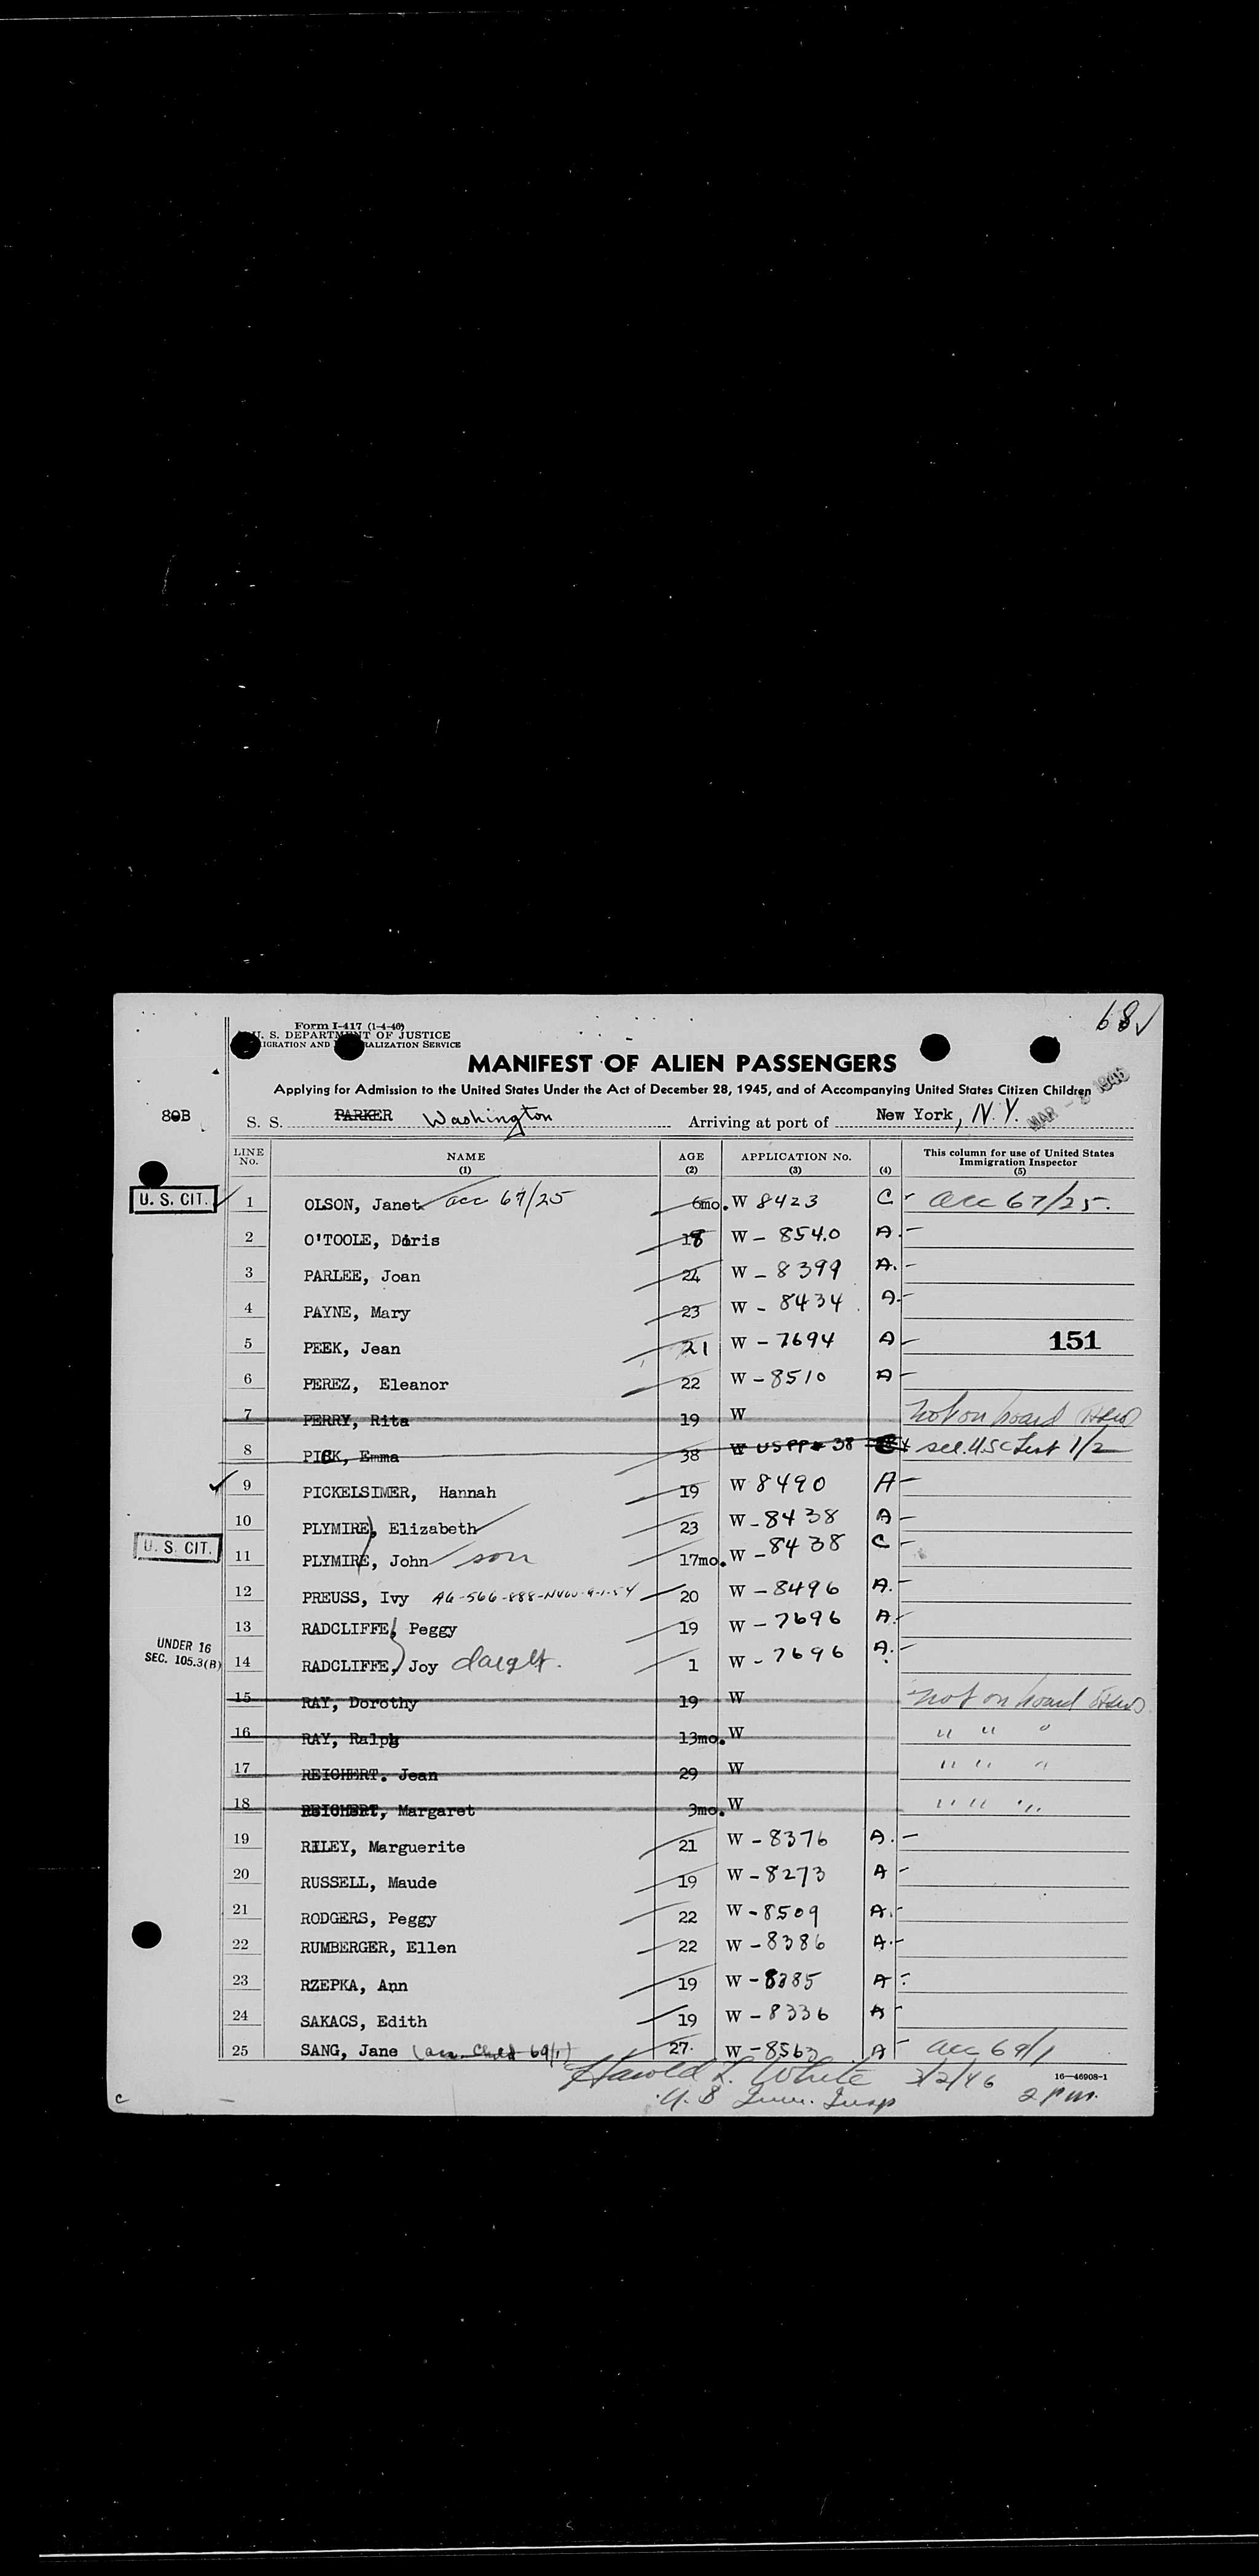 68✓
Form I-417 (1-4-46)
U. S. DEPARTMENT OF JUSTICE
IGRATION AND RALIZATION SERVICE
MANIFEST OF ALIEN PASSENGERS
Applying for Admission to the United States Under the Act of December 28, 1945, and of Accompanying United States Citizen Children
MAR - 1946
80B S. S. PARKER Washington Arriving at port of New York, N.Y.
LINE No. NAME (1) AGE (2) APPLICATION No. (3) (4) This column for use of United States Immigration Inspector (5)
U. S. CIT. ✓ 1 OLSON, Janet acc 67/25 6mo. W 8423 C - acc 67/25.
2 O'TOOLE, Doris 18 W - 8540 A. -
3 PARLEE, Joan 24 W - 8399 A. -
4 PAYNE, Mary 23 W - 8434 A. -
5 PEEK, Jean 21 W - 7694 A - 151
6 PEREZ, Eleanor 22 W - 8510 A -
7 PERRY, Rita 19 W not on board
8 PICK, Emma 38 W US PP# 38 see U.S.C List 1/2
✓ 9 PICKELSIMER, Hannah 19 W 8490 A -
10 PLYMIRE, Elizabeth 23 W - 8438 A -
U. S. CIT. 11 PLYMIRE, John son 17mo. W - 8438 C -
12 PREUSS, Ivy 20 W - 8496 A. -
13 RADCLIFFE, Peggy 19 W - 7696 A. -
UNDER 16 SEC. 105.3(B) 14 RADCLIFFE, Joy daught. 1 W - 7696 A. -
15 RAY, Dorothy 19 W not on board
16 RAY, Ralph 13mo. W " " "
17 REICHERT. Jean 29 W " " "
18 REICHERT, Margaret 3mo. W " " "
19 RILEY, Marguerite 21 W - 8376 A. -
20 RUSSELL, Maude 19 W - 8273 A -
21 RODGERS, Peggy 22 W - 8509 A. -
22 RUMBERGER, Ellen 22 W - 8386 A. -
23 RZEPKA, Ann 19 W - 8385 A -
24 SAKACS, Edith 19 W - 8336 A -
25 SANG, Jane (acc. child 69/1) 27. W - 8563 A - acc 69/1
Harold L. White 3/2/46 16—46908-1
U. S Imm. Insp 2 pm.
c